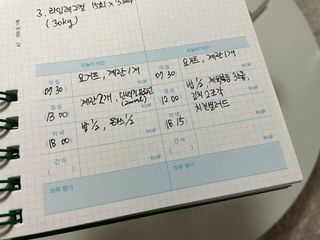 3. 라잉레그컬 15회 × 3set
(30kg)
오늘의 식단
오늘의 식단
아침
07 30
요거트, 계란 1개
kcal
아침
07 30
요거트, 계란 1개
kcal
점심
13 00
계란 2개,
kcal
점심
12 00
밥 1/2,
김치 2조각
kcal
저녁
18 00
밥 1/2,
kcal
저녁
18 15
치킨샐러드
kcal
간식
( )
kcal
간식
( )
kcal
하루 평가
하루 평가